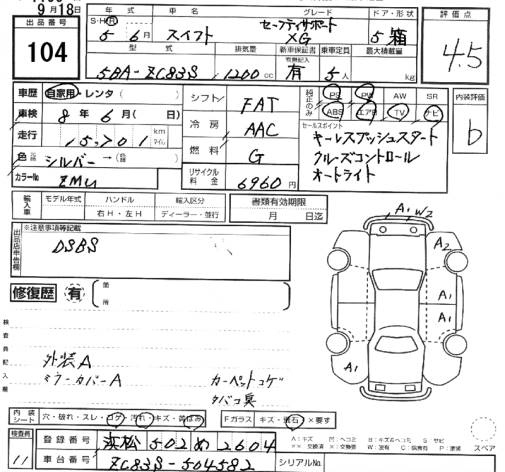 9月18日
年式 車名 グレード ドア・形状 評価点
出品番号 S・H・R セーフティサポート
104 5年 6月 スイフト XG 5 箱 4.5
型式 排気量 新車保証書 乗車定員 最大積載量
有無記入
5BA-ZC83S 1200cc 有 5人 kg
車歴 自家用・レンタ( ) シフト FAT 純正のみ PS PW AW SR 内装評価
車検 8年 6月( 日) ABS エアB TV ナビ
走行 15,701 km マイル 冷房 AAC セールスポイント b
キーレスプッシュスタート
色 シルバー→( ) 燃料 G クルーズコントロール
カラーNo ZMU リサイクル料金 6960円 オートライト
輸入車 モデル年式 ハンドル 輸入区分 書類有効期限
右H・左H ディーラー・並行 月 日迄
出品店申告欄 ※注意事項等記載
DSBS
修復歴 有 箇所
A1 W2
A2
A1
A1
A1
検査員記入欄
外装A
ミラーカバーA カーペットコゲ
タバコ臭
内装シート 穴・破れ・スレ・コゲ・汚れ・キズ・黄ばみ Fガラス キズ・飛石・×要す
検査員 11 登録番号 浜松 502 め 2604
車台番号 ZC83S-504582 シリアルNo.
A:キズ U:ヘコミ B:キズ&ヘコミ S:サビ
××:交換済 X:交換要 W:波有 C:腐食有 P:塗装 スペア